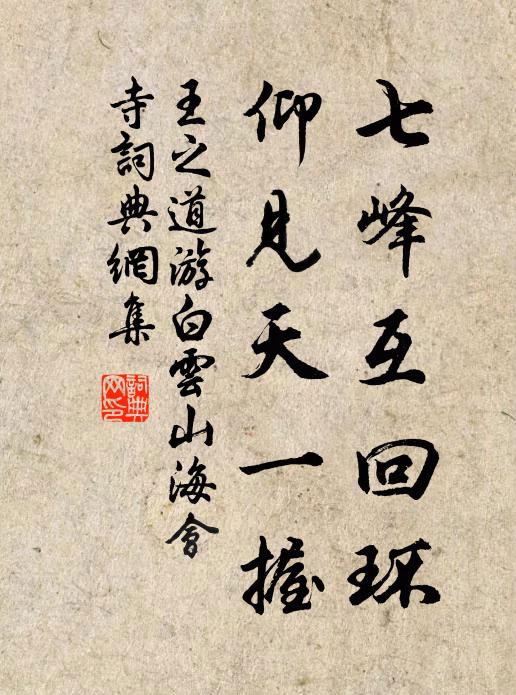 七峰互回环
仰见天一握
王之道游白雲山海會
寺詞典網集
詞典
网印